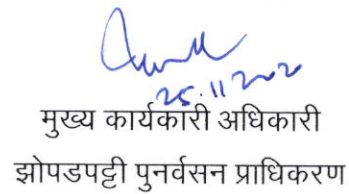 25.11
मुख्य कार्यकारी अधिकारी
झोपडपट्टी पुनर्वसन प्राधिकरण